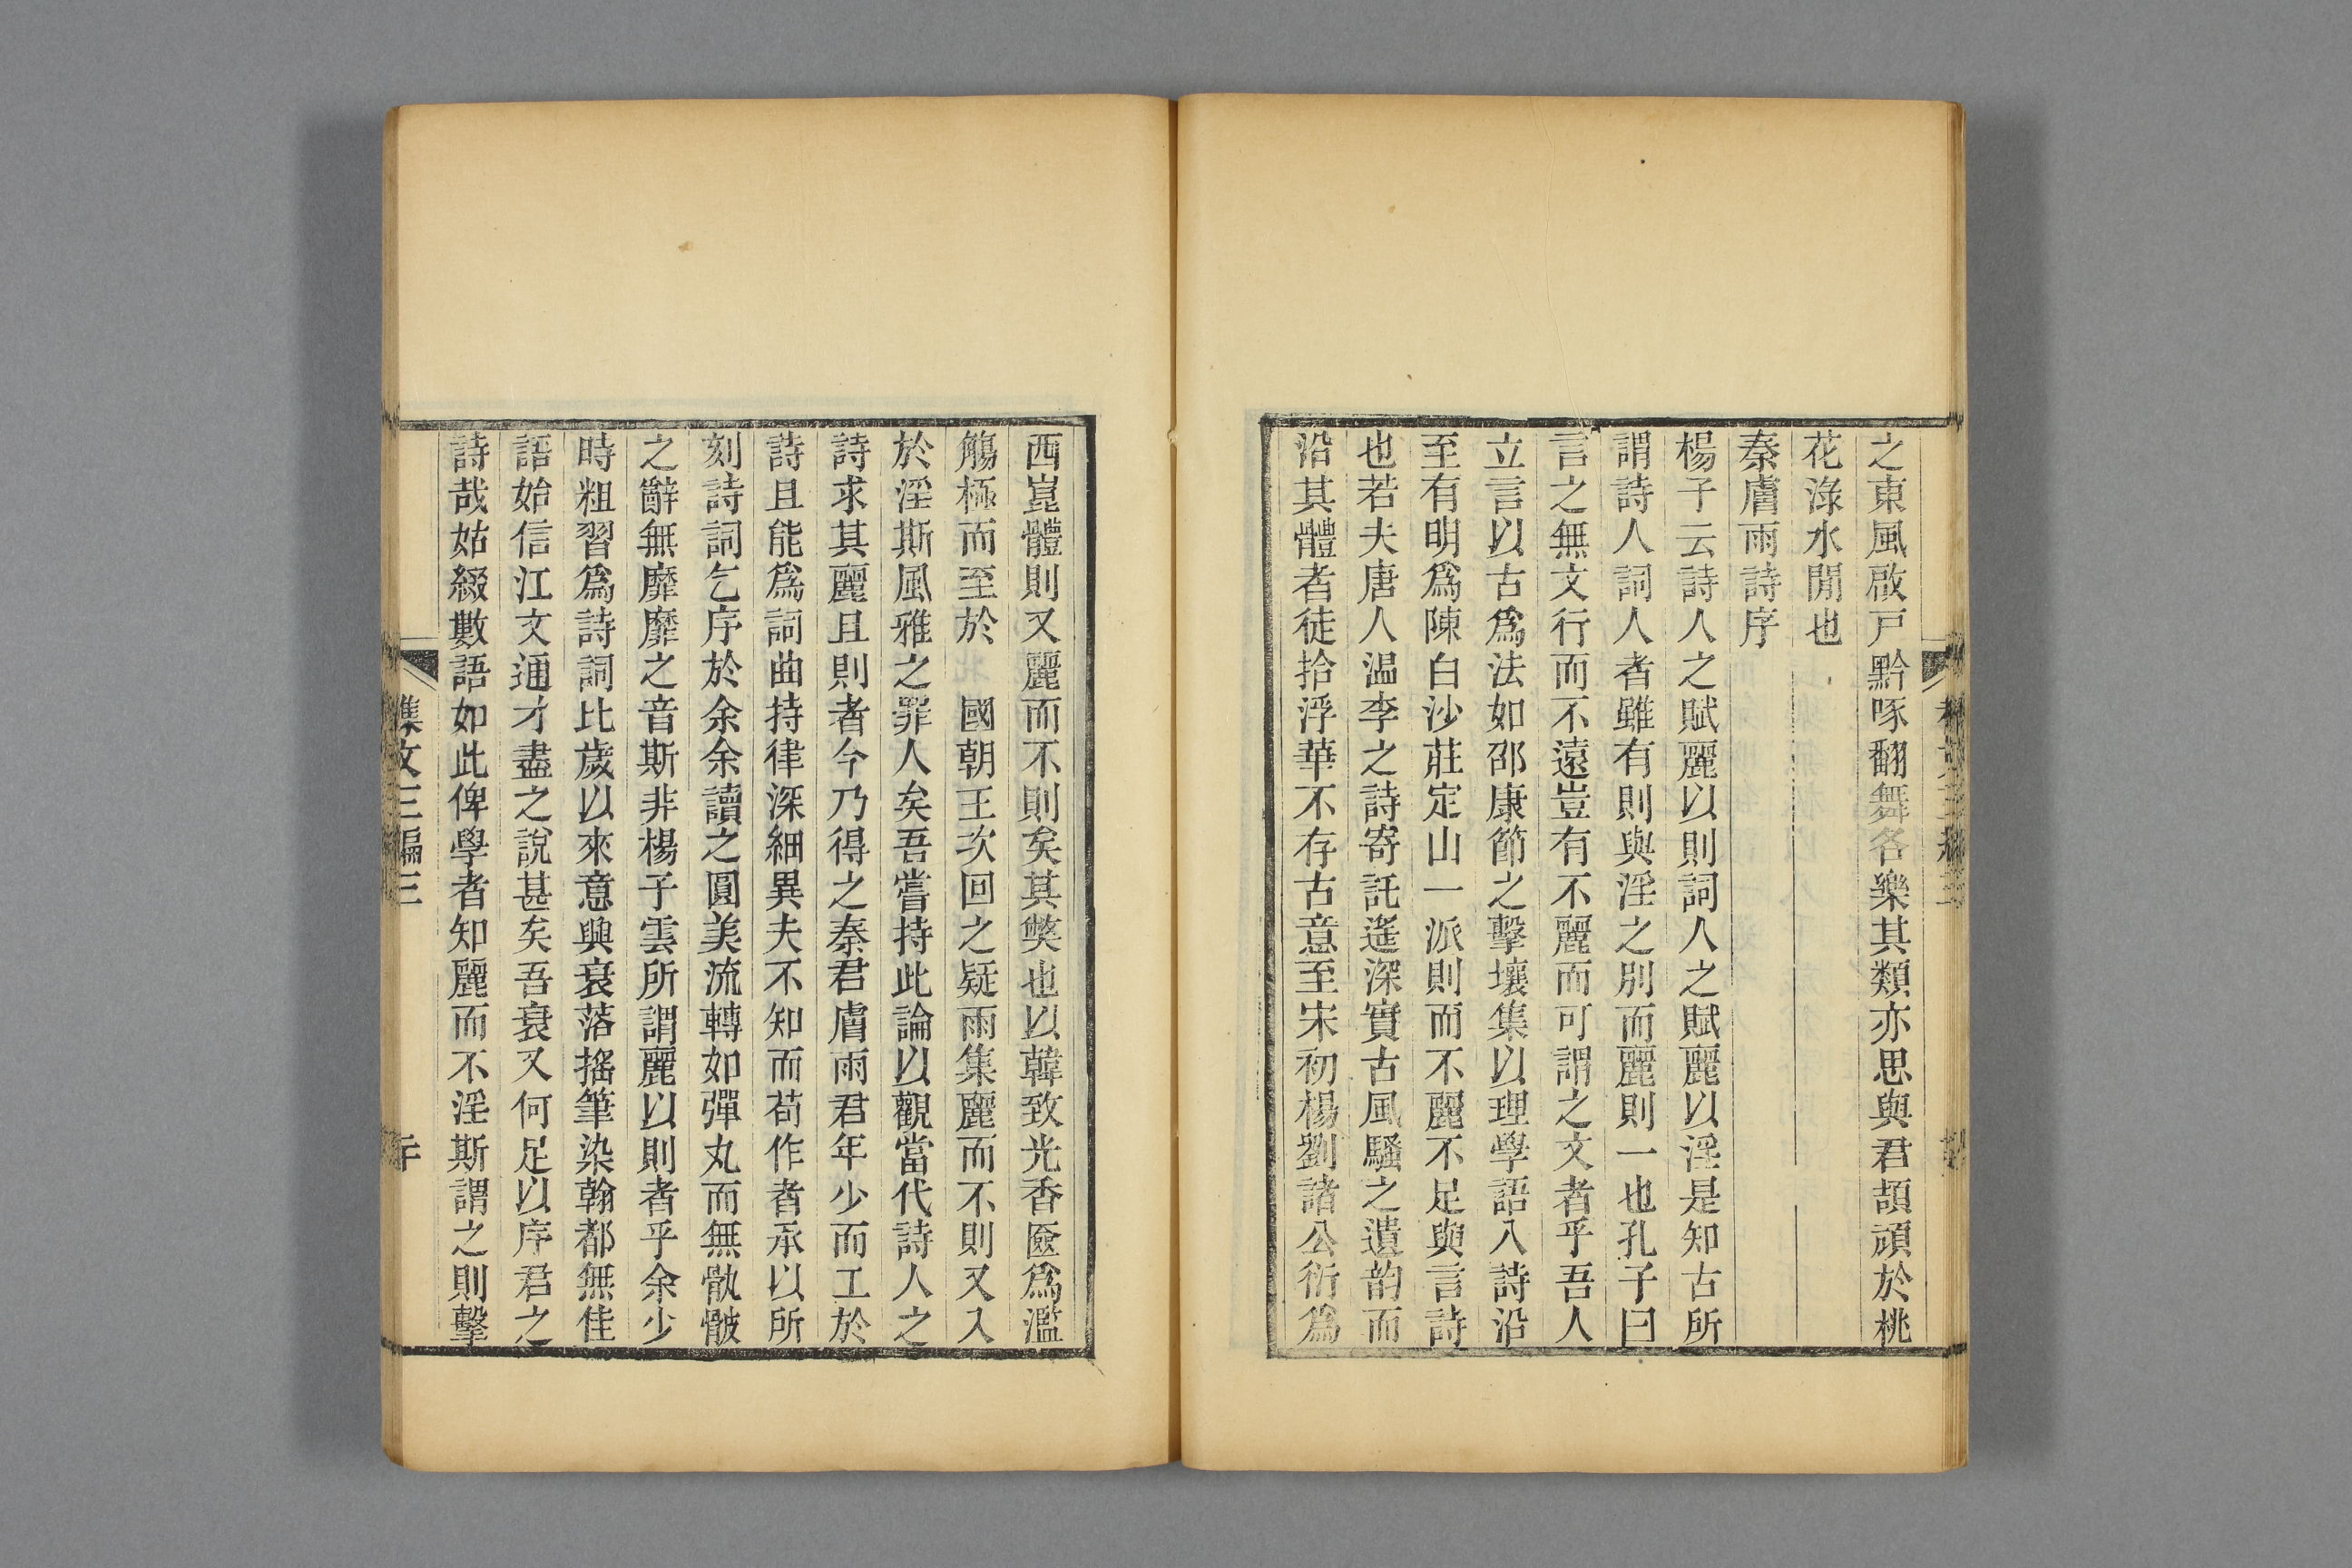 之東風啟戸黔啄翻舞各樂其類亦思與君頡頏於桃
花淥水閒也
秦膚雨詩序
楊子云詩人之賦麗以則詞人之賦麗以淫是知古所
謂詩人詞人者雖有則與淫之別而麗則一也孔子曰
言之無文行而不遠豈有不麗而可謂之文者乎吾人
立言以古爲法如邵康節之擊壤集以理學語入詩沿
至有明爲陳白沙莊定山一派則而不麗不足與言詩
也若夫唐人温李之詩寄託遙深實古風騷之遺韵而
沿其體者徒拾浮華不存古意至宋初楊劉諸公衍爲
西崑體則又麗而不則矣其獘也以韓致光香匳爲濫
觴極而至於 國朝王次回之疑雨集麗而不則又入
於淫斯風雅之罪人矣吾嘗持此論以觀當代詩人之
詩求其麗且則者今乃得之秦君膚雨君年少而工於
詩且能爲詞曲持律深細異夫不知而苟作者承以所
刻詩詞乞序於余余讀之圓美流轉如彈丸而無骫骳
之辭無靡靡之音斯非楊子雲所謂麗以則者乎余少
時粗習爲詩詞比歲以來意興衰落搖筆染翰都無佳
語始信江文通才盡之說甚矣吾衰又何足以序君之
詩哉姑綴數語如此俾學者知麗而不淫斯謂之則擊
集文三編三